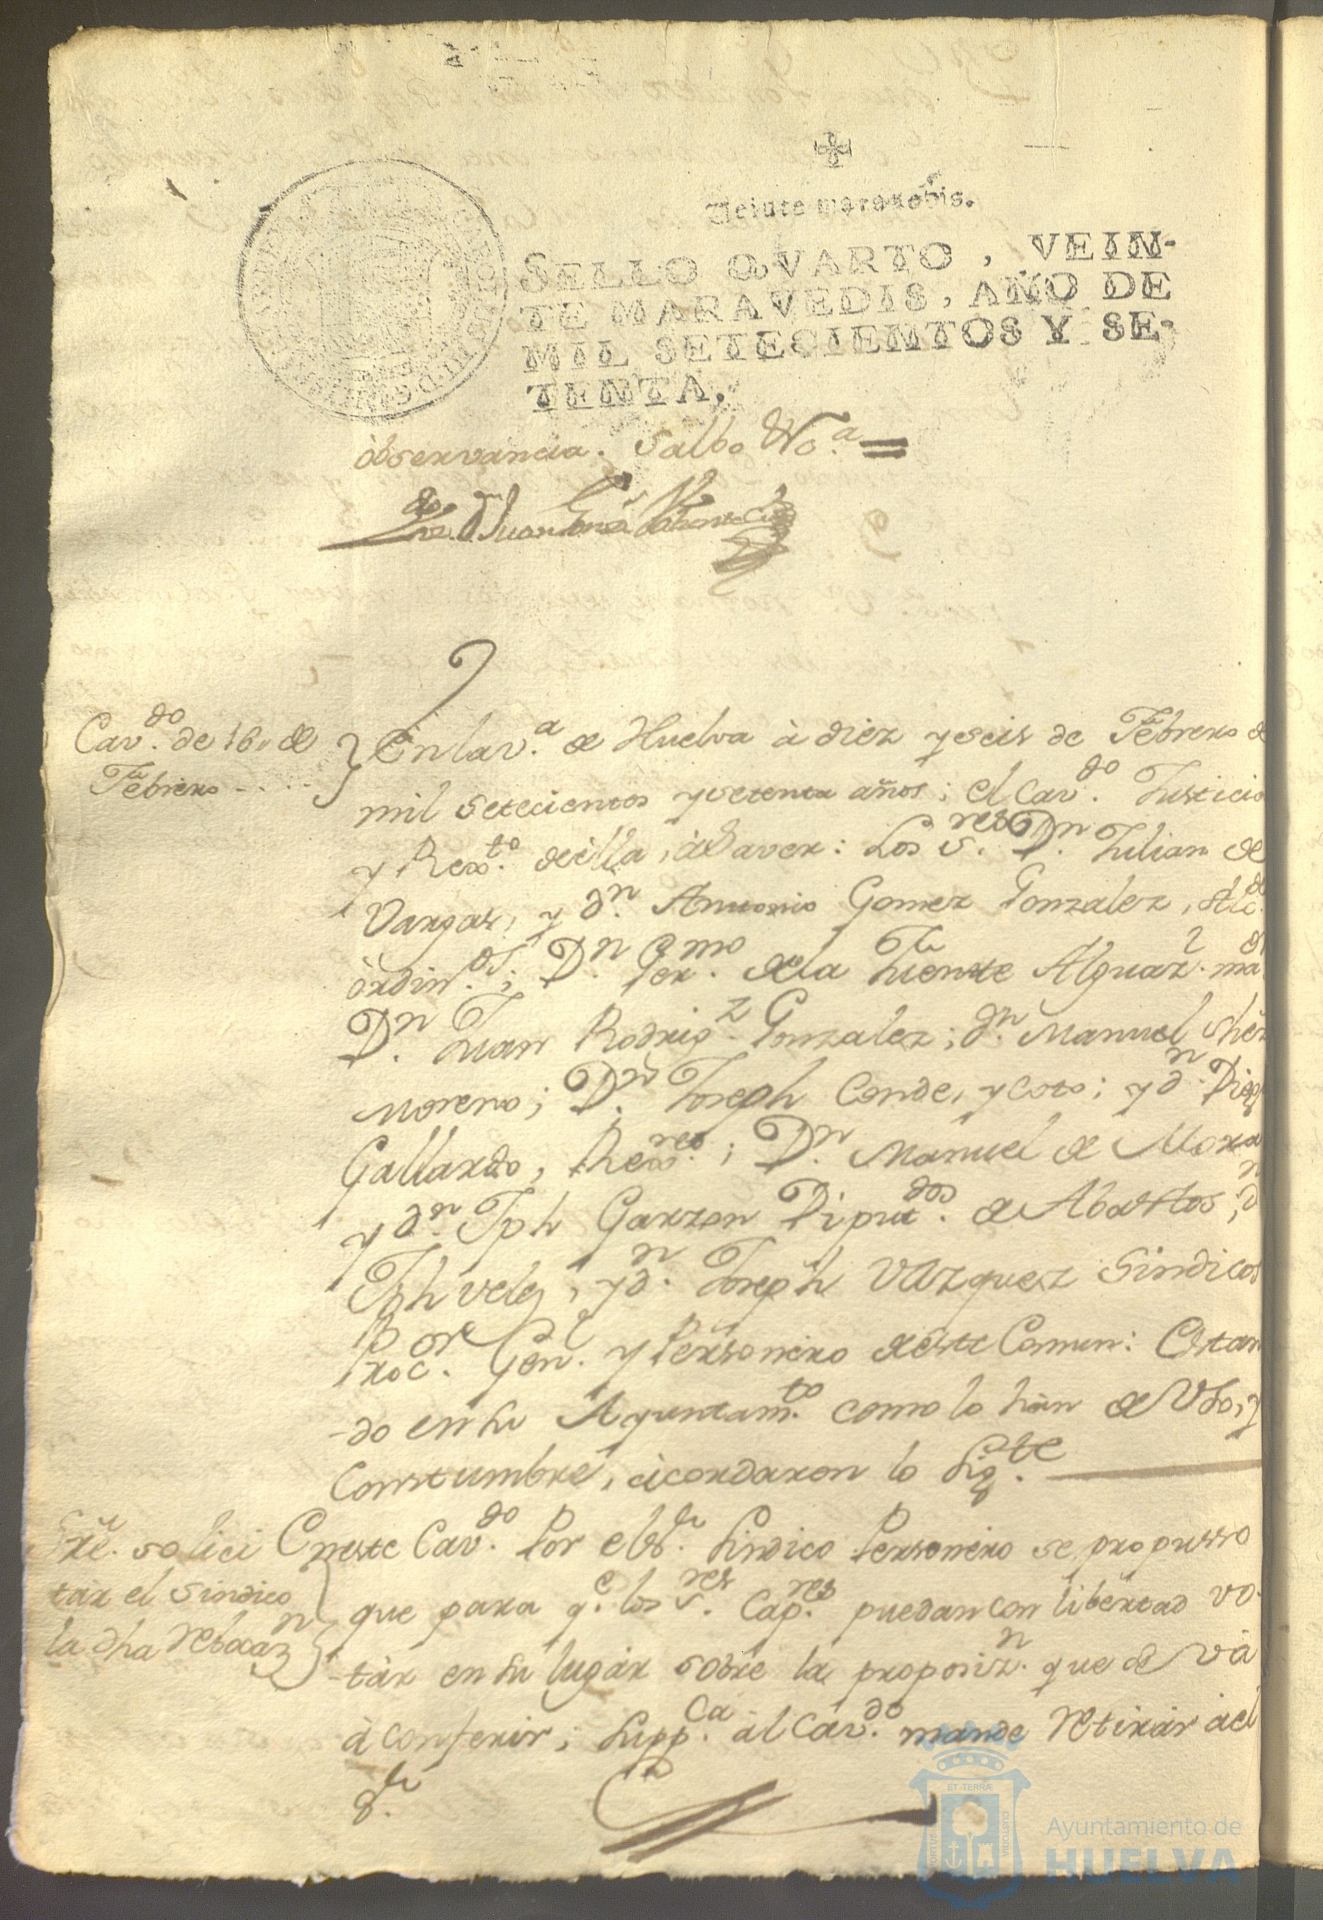 Veinte maravedis.
SELLO QVARTO, VEIN-
TE MARAVEDIS, AÑO DE
MIL SETECIENTOS Y SE-
TENTA.
observancia. Salbo
Juan
Cav.do de 16,, de
Febrero - . . . .
En la v.a de Huelva à diez y seis de Febrero de
mil setecientos y setenta años; el Cav.do Justicia
y Rex.to de ella, à saver: Los S.res D.n Julian de
Vargas, y d.n Antonio Gomez Gonzalez, Alc.des
òrdin.os; D.n Ger.mo de la Fuente Alguaz.l
D.n Juan Rodrig.z Gonzalez; d.n Manuel
Moreno; D.n Joseph Conde, y Coto; y d.n Diego
Gallardo, Rex.res; D.n Manuel de Mora
y d.n Jph Garzon Diput.dos de Abastos; d.n
Jph Velez, y d.n Joseph Vazquez Sindicos
Proc.or Gen.l y Personero de este Comun: Estan
-do en su Ayuntam.to como lo hàn de Uso, y
Constumbre, àcordaron lo sig.te
solici
tàr el Sindico
la dha
En este Cav.do Por el S.r Sindico Personero se propusso
que para q.e los S.res Cap.res puedan con libertad vo-
-tàr en su lugàr sobre la proposiz.n que se và
à conferir; supp.ca àl Cav.do mande retiràr àel
S.r
ET TERRÆ
Ayuntamiento de
HUELVA